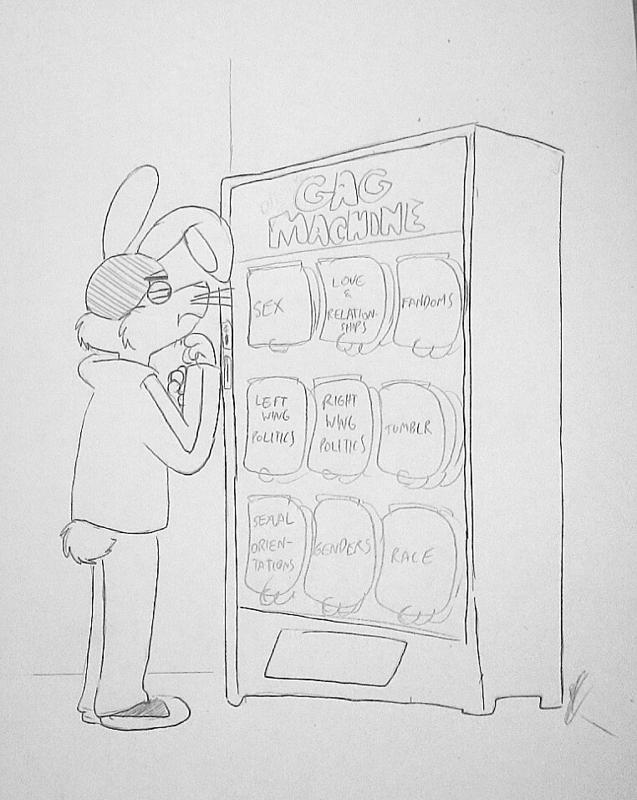 GAG
MACHINE
SEX
LOVE
&
RELATION-
SHIPS
FANDOMS
LEFT
WING
POLITICS
RIGHT
WING
POLITICS
TUMBLR
SEXUAL
ORIEN-
TATIONS
GENDERS
RACE